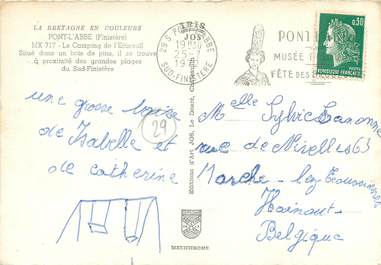 LA BRETAGNE EN COULEURS
PONT-L'ABBÉ (Finistère)
MX 717 - Le Camping de l'Écureuil
Situé dans un bois de pins, il se trouve
à proximité des grandes plages
du Sud-Finistère
29 S PONT-L'ABBE
19H
25-7
SUD-FINISTERE
PONT
MUSÉE
FÊTE DES
0,30
REPUBLIQUE FRANÇAISE
une grosse bise
de Isabelle et
de catherine
29
Editions d'Art JOS, Le Doaré, Châteaulin
Melle Sylvie
rue de Nivelles 63
Marche-lez-Ecaussinnes
Hainaut
Belgique
MEXICHROME